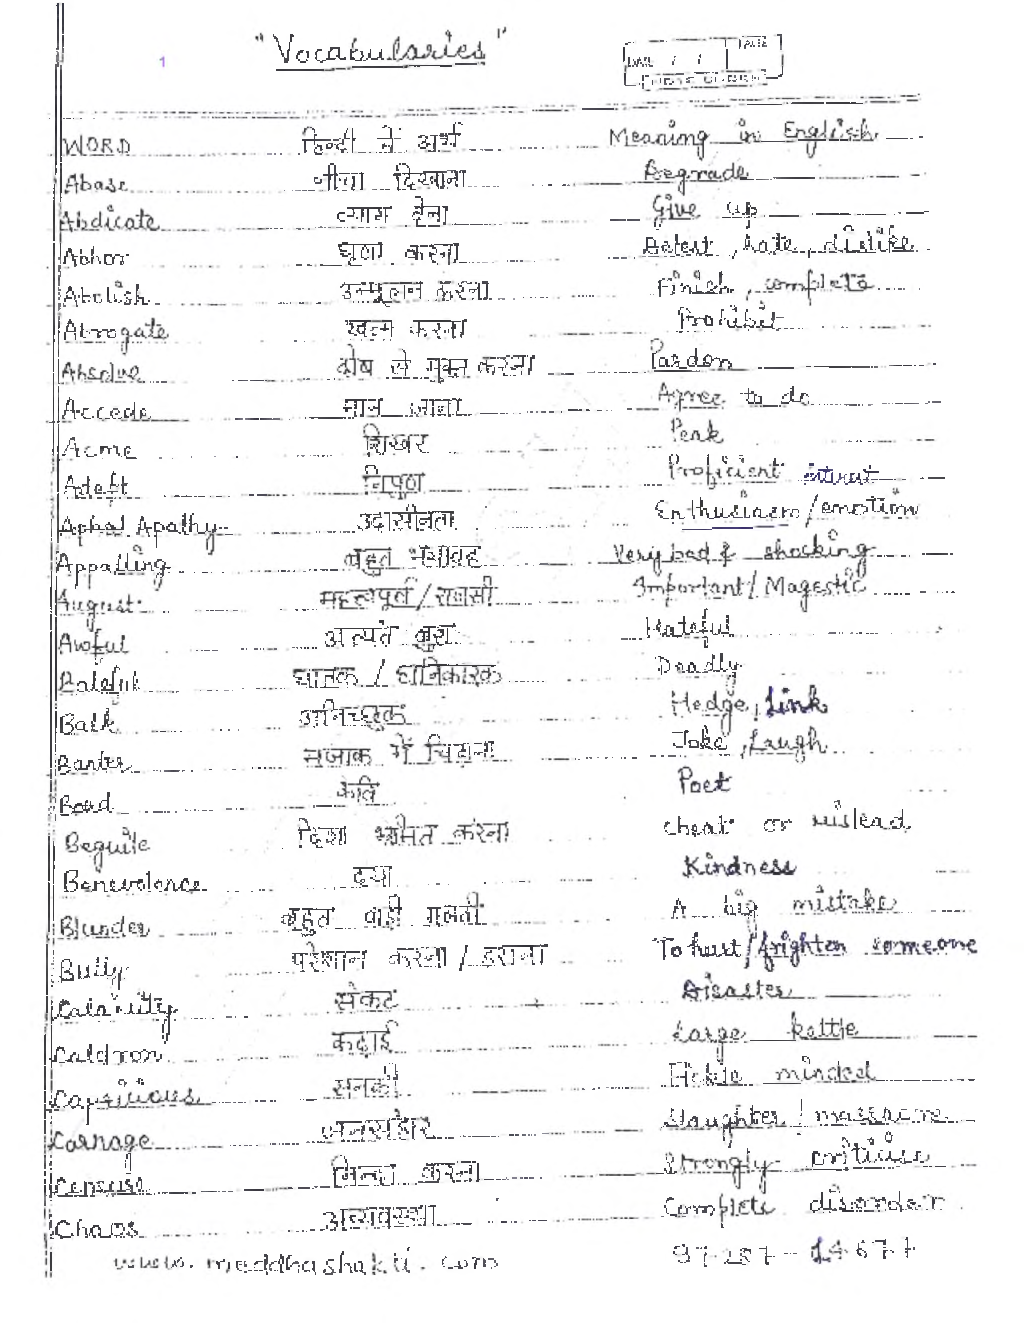 1
"Vocabularies"
DATE / / PAGE
WORD हिन्दी में अर्थ Meaning in English
Abase नीचा दिखाना Degrade
Abdicate त्याग देना Give up
Abhor घृणा करना Detest, hate, dislike
Abolish उन्मूलन करना Finish, complete
Abrogate खत्म करना Prohibit
Absolve दोष से मुक्त करना Pardon
Accede मान जाना Agree to do
Acme शिखर Peak
Adept निपुण Proficient
Apathy उदासीनता Enthusiasm/emotion
Appalling बहुत भयावह Very bad & shocking
August महत्वपूर्ण/राजसी Important/Magestic
Awful अत्यंत बुरा Hateful
Baleful घातक / हानिकारक Deadly
Balk अनिच्छुक Hedge, Link
Banter मजाक में चिढ़ाना Joke, Laugh
Boad कवि Poet
Beguile दिशा भ्रमित करना cheat or mislead
Benevolence दया Kindness
Blunder बहुत बड़ी गलती A big mistake
Bully परेशान करना / डराना To hust/frighten someone
Calamity संकट Disaster
Caldron कढ़ाई Large kettle
Capricious सनकी Fickle minded
Carnage जनसंहार Slaughter / massacre
Censure निन्दा करना Strongly criticise
Chaos अव्यवस्था Complete disorder
www.meddhashakti.com